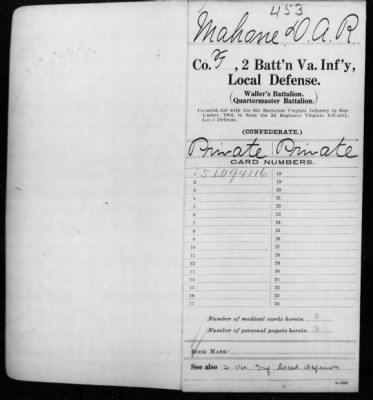 453
Mahone, D. A. R.
Co. F, 2 Batt'n Va. Inf'y,
Local Defense.
(Waller's Battalion.
Quartermaster Battalion.)
Consolidated with the 6th Battalion Virginia Infantry in Sep-
tember, 1864, to form the 2d Regiment Virginia Infantry,
Local Defense.
(CONFEDERATE.)
Private Private
CARD NUMBERS.
1 51094116 18
2 19
3 20
4 21
5 22
6 23
7 24
8 25
9 26
10 27
11 28
12 29
13 30
14 31
15 32
16 33
17 34
Number of medical cards herein 0
Number of personal papers herein 0
BOOK MARK:
See also 2 Va Inf Local Defense